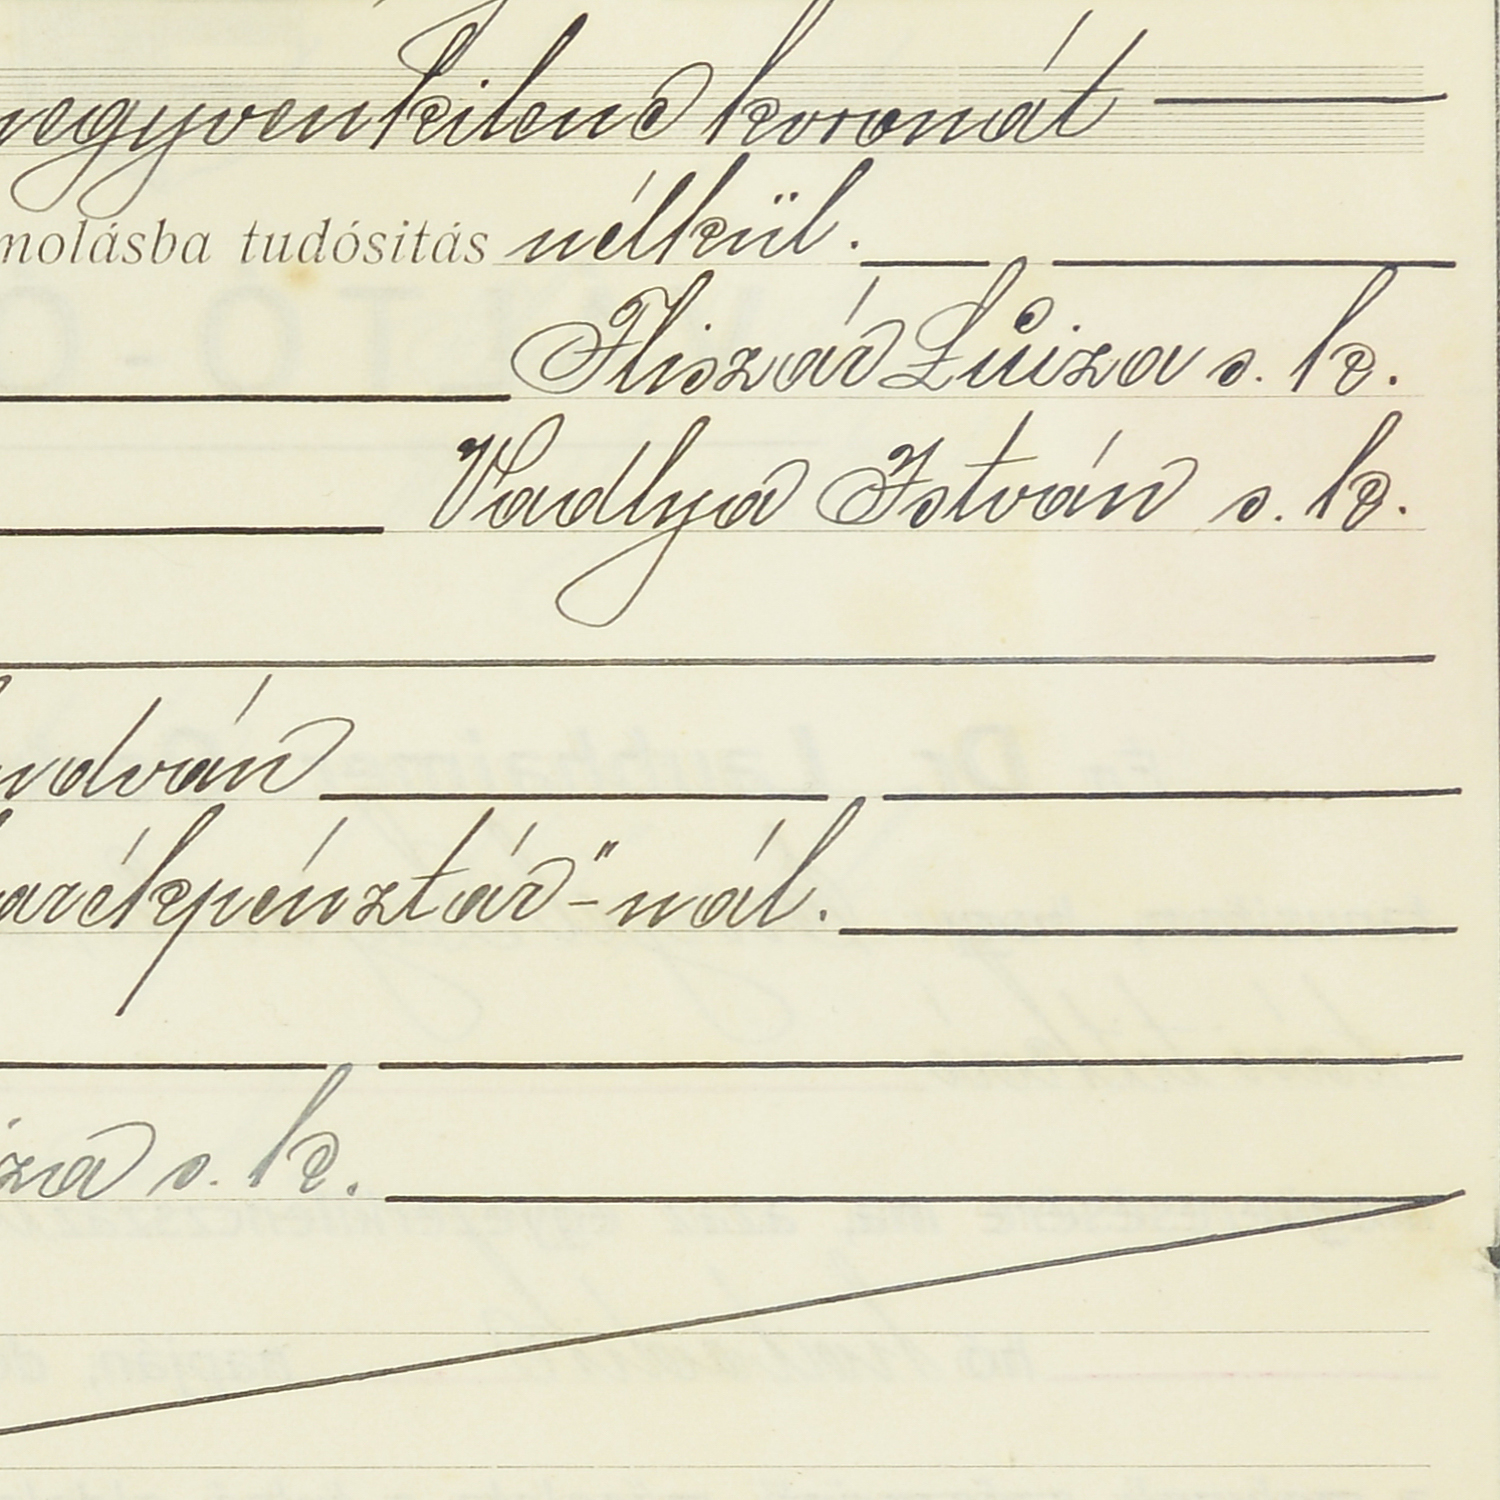 negyvenkilenc koronát
molásba tudósitás nélkül.
Fliszár Lujza s. k.
Vadlya István s. k.
ndván
arékpénztár"-nál.
za s. k.